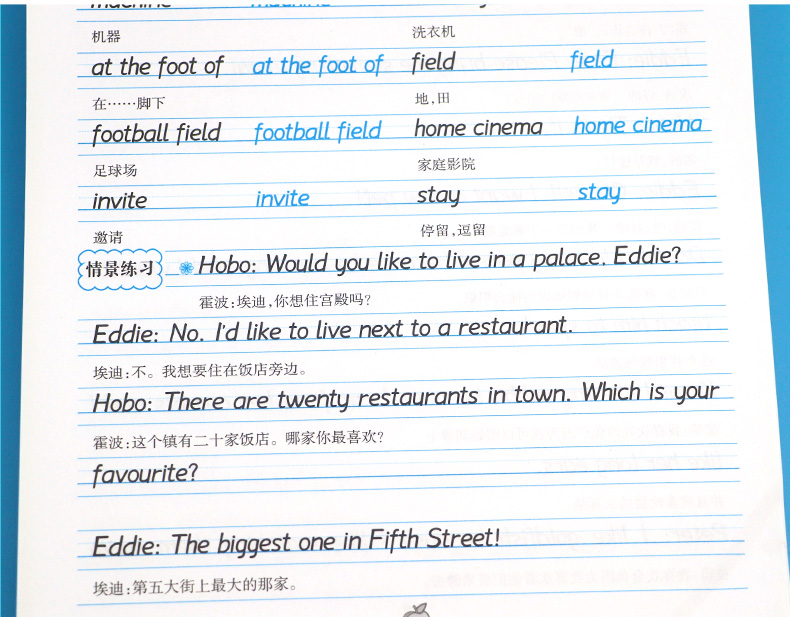 machine machine
机器 洗衣机
at the foot of at the foot of field field
在……脚下 地,田
football field football field home cinema home cinema
足球场 家庭影院
invite invite stay stay
邀请 停留,逗留
情景练习 Hobo: Would you like to live in a palace, Eddie?
霍波:埃迪,你想住宫殿吗?
Eddie: No. I'd like to live next to a restaurant.
埃迪:不。我想要住在饭店旁边。
Hobo: There are twenty restaurants in town. Which is your
霍波:这个镇有二十家饭店。哪家你最喜欢?
favourite?
Eddie: The biggest one in Fifth Street!
埃迪:第五大街上最大的那家。